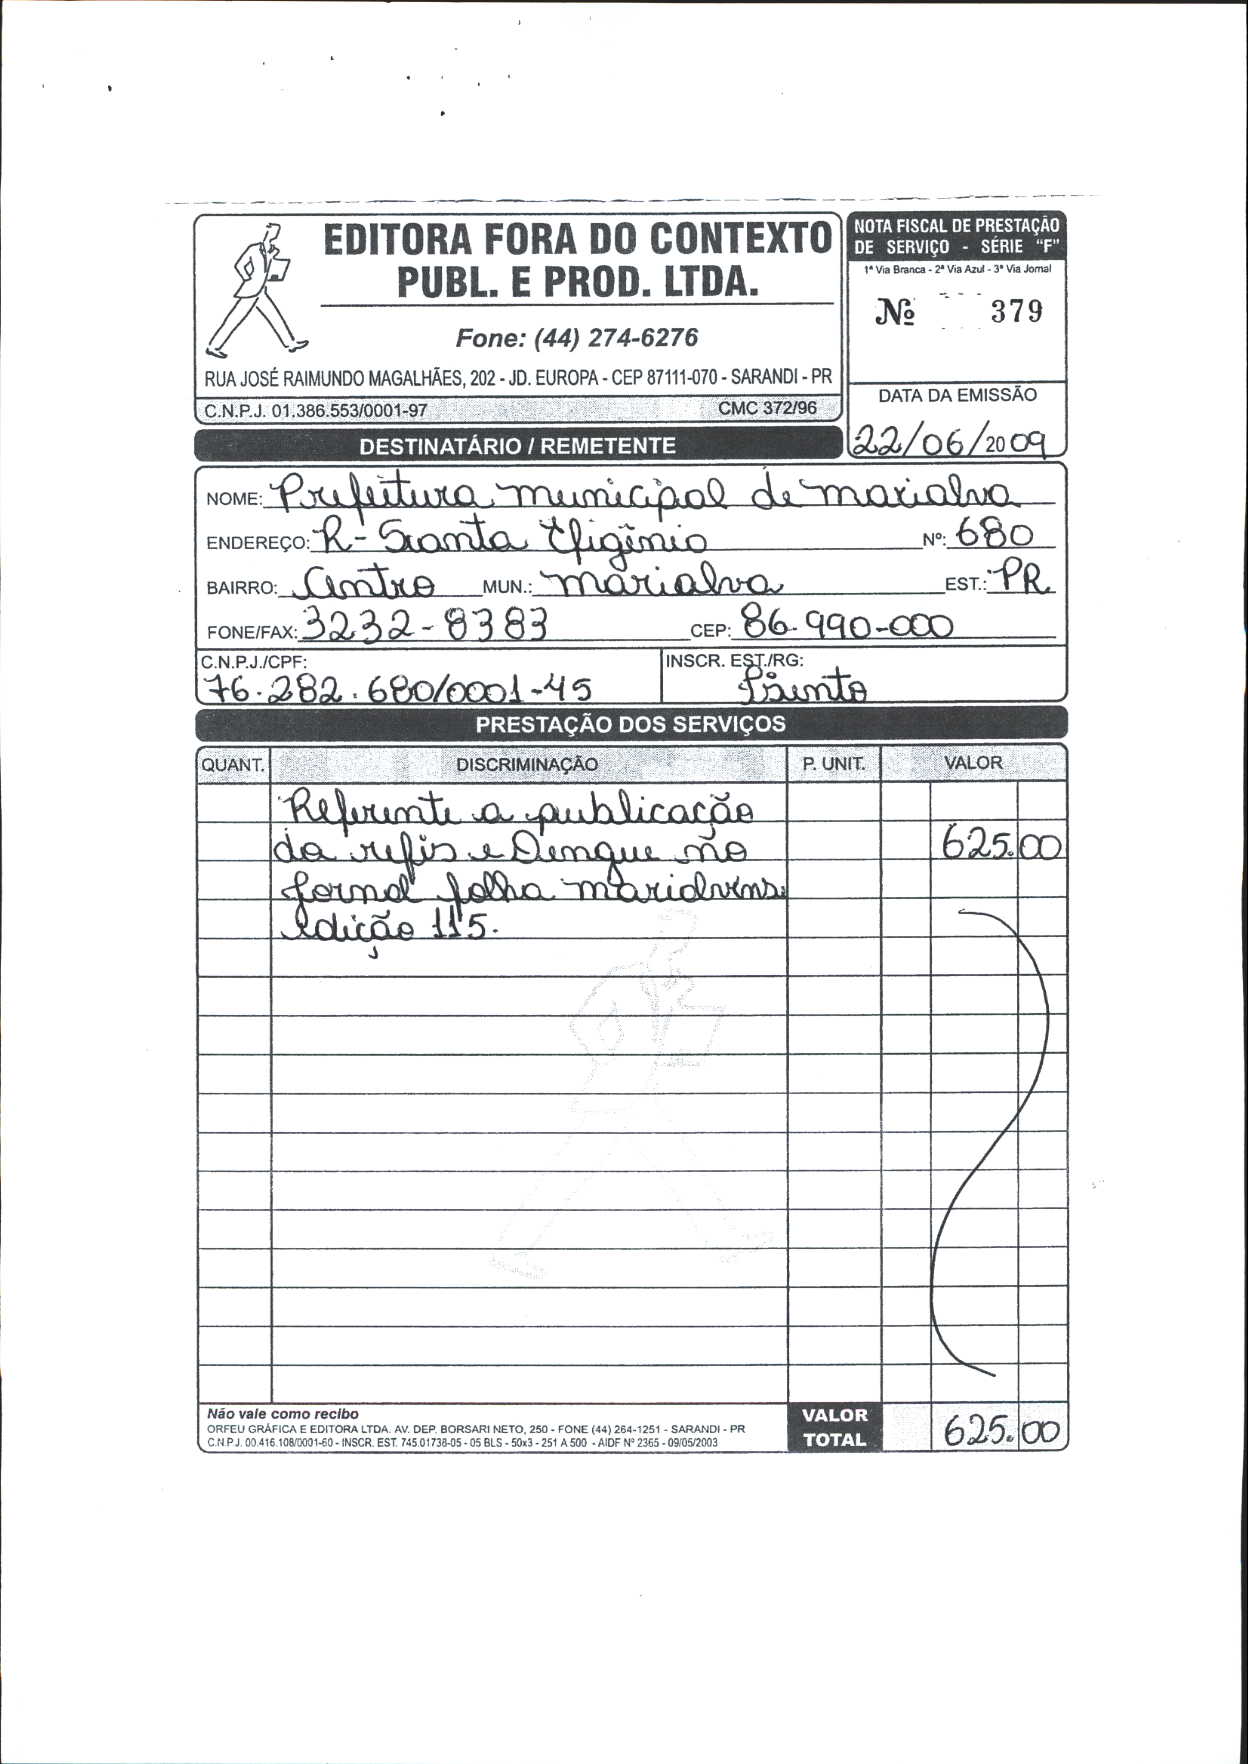 EDITORA FORA DO CONTEXTO
PUBL. E PROD. LTDA.
Fone: (44) 274-6276
RUA JOSÉ RAIMUNDO MAGALHÃES, 202 - JD. EUROPA - CEP 87111-070 - SARANDI - PR
C.N.P.J. 01.386.553/0001-97 CMC 372/96
NOTA FISCAL DE PRESTAÇÃO
DE SERVIÇO - SÉRIE “F”
1ª Via Branca - 2ª Via Azul - 3ª Via Jornal
Nº 379
DATA DA EMISSÃO
22/06/2009
DESTINATÁRIO / REMETENTE
NOME: Prefeitura municipal de marialva
ENDEREÇO: R- Santa Efigênio Nº: 680
BAIRRO: Centro MUN.: marialva EST.: PR
FONE/FAX: 3232-8383 CEP: 86.990-000
C.N.P.J./CPF: INSCR. EST./RG:
76.282.680/0001-45 Isento
PRESTAÇÃO DOS SERVIÇOS
QUANT. DISCRIMINAÇÃO P. UNIT. VALOR
Referente a publicação
da refis e Dengue no 625.00
Jornal folha marialvense
edição 115.
Não vale como recibo
ORFEU GRÁFICA E EDITORA LTDA. AV. DEP. BORSARI NETO, 250 - FONE (44) 264-1251 - SARANDI - PR
C.N.P.J. 00.416.108/0001-60 - INSCR. EST. 745.01738-05 - 05 BLS - 50x3 - 251 A 500 - AIDF Nº 2365 - 09/05/2003
VALOR
TOTAL 625.00